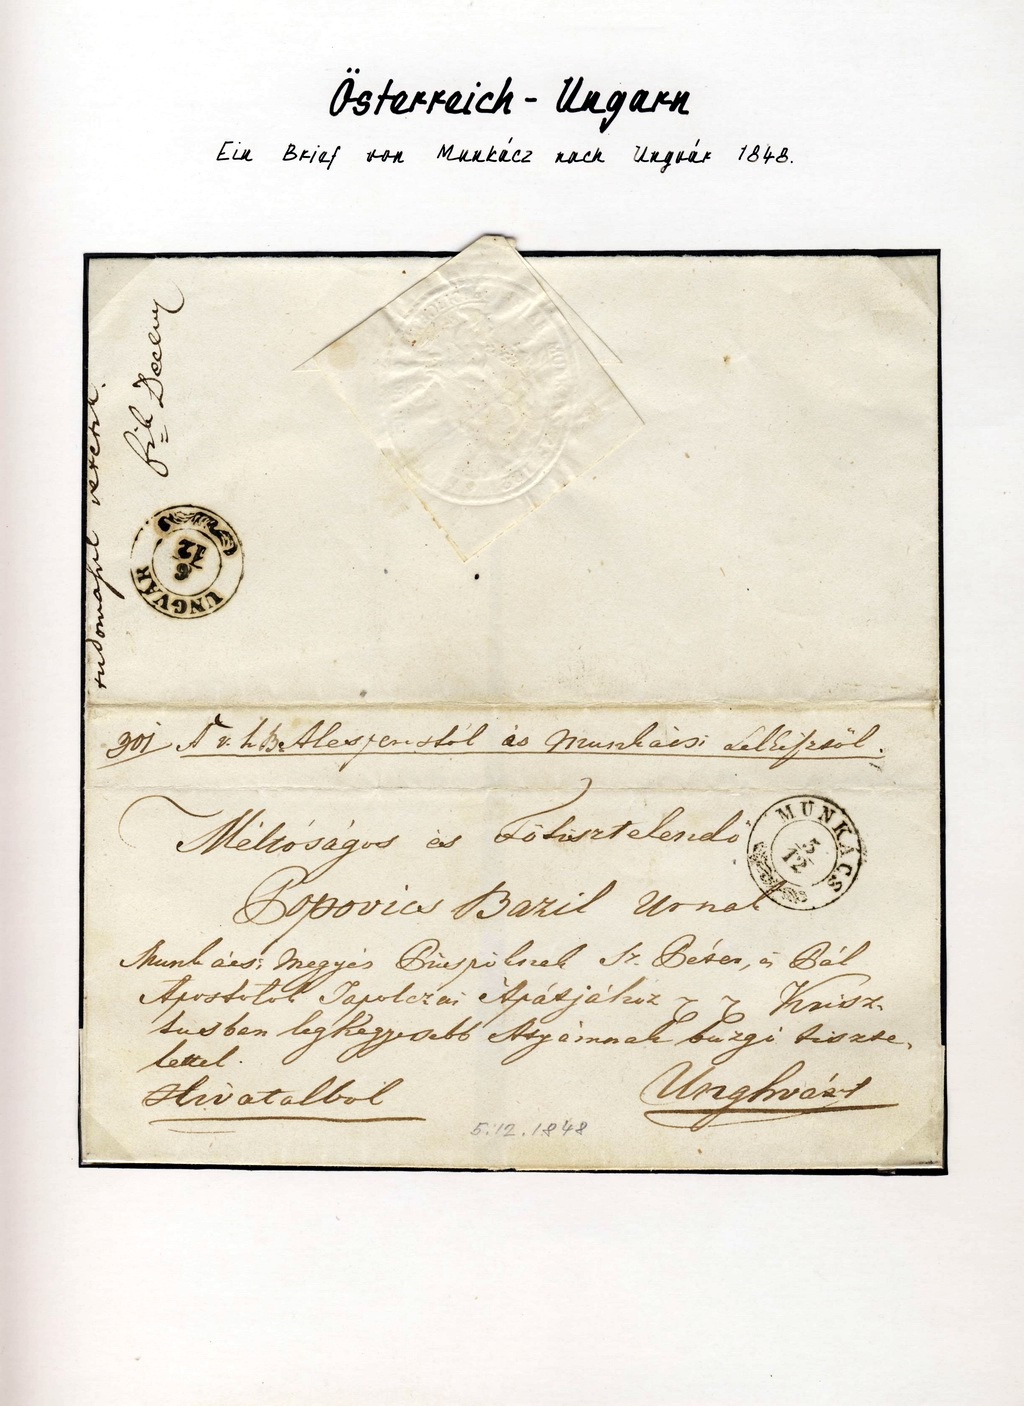 Österreich - Ungarn
Ein Brief von Munkácz nach Ungvár 1848.
tudomásul vétetik.
UNGVÁR
6/12
901 Alesperestöl és Munkácsi
MUNKÁCS
5/12
Méltóságos és Főtisztelendö
Popovics Bazil Urnak
Munkácsi Megyés Püspöknek Sz. Péter, és Pál
Apostolok Tapolczai Apátjához Krisz-
tusban legkegyesebb Atyámnak buzgó tiszte-
lettel.
Hivatalból
Unghvárt
5.12.1848